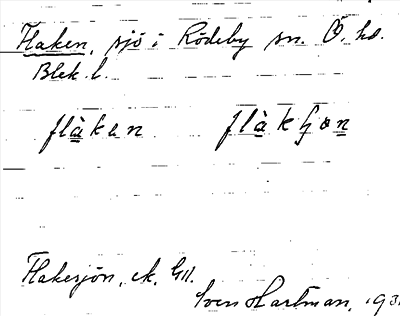 Flaken, sjö i Rödeby sn. Ö. hd.
Blek. l.
flàken flàkʃön
Flakesjön, ek. Gll.
Sven Hartman, 193